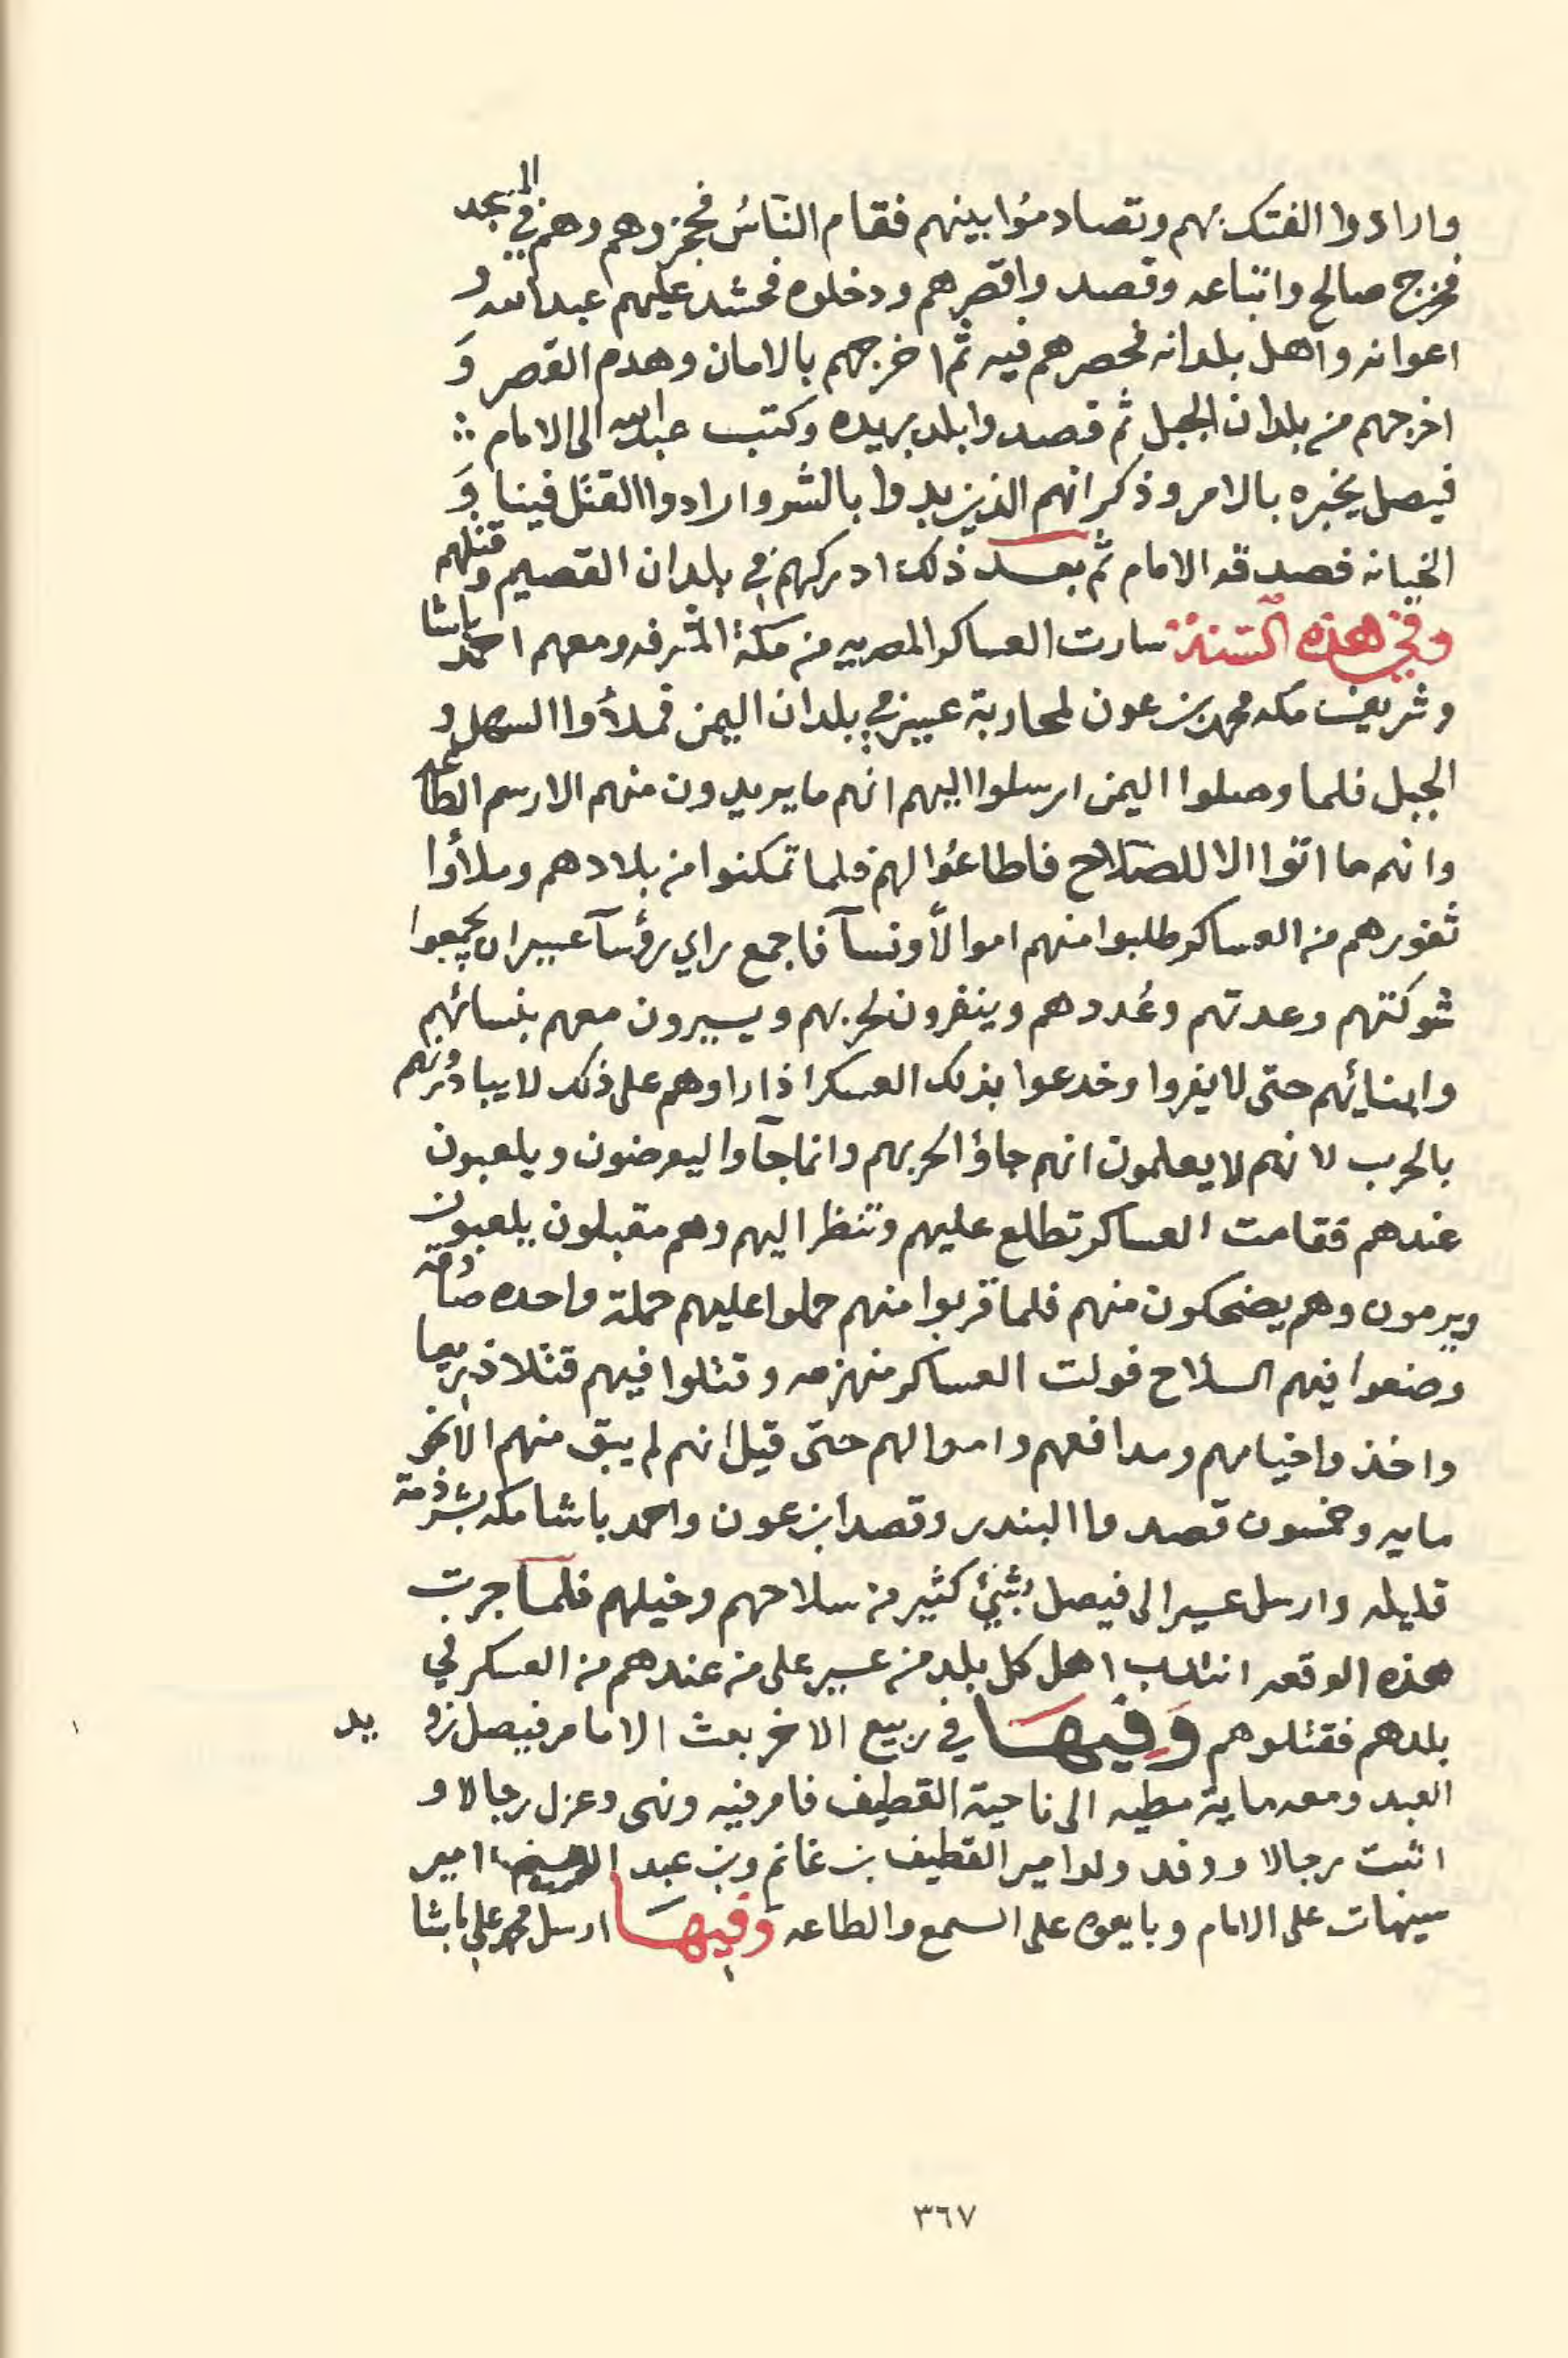 وارادوا الفتك بهم وتصادموا بينهم فقام الناس فحجزوهم وهم في المسجد
فخرج صالح واتباعه وقصدوا قصرهم ودخلوه فحشد عليهم عبدالله و
اعوانه واهل بلدانه فحصرهم فيه ثم اخرجهم بالامان وهدم القصر و
اخرجهم من بلدان الجبل ثم قصدوا بلد بريده وكتب عبدالله الى الامام
فيصل يخبره بالامر وذكر انهم الذين بدوا بالشر وارادوا القتل فينا و
الخيانه فصدقه الامام ثم بعد ذلك ادركهم في بلدان القصيم وقتلهم
وفي هذه السنة سارت العساكر المصريه من مكة المشرفه ومعهم احمد باشا
وشريف مكه محمد بن عون لمحاربة عسير في بلدان اليمن فملأوا السهل و
الجبل فلما وصلوا اليمن ارسلوا اليهم انهم ما يريدون منهم الا رسم الطاعه
وانهم ما اتوا الا للصلاح فاطاعوا لهم فلما تمكنوا من بلادهم وملأوا
ثغورهم من العساكر طلبوا منهم اموالاً ونسآ فاجمع راي رؤسآ عسير ان يجمعوا
شوكتهم وعدتهم وعددهم وينفرون لحربهم ويسيرون معهم بنسائهم
وابنائهم حتى لا يفروا وخدعوا بذلك العسكر اذا راوهم على ذلك لا يبادرونهم
بالحرب لانهم لا يعلمون انهم جاؤا لحربهم وانما جآوا ليعرضون ويلعبون
عندهم فقامت العساكر تطلع عليهم وتنظر اليهم وهم مقبلون يلعبون
ويرمون وهم يضحكون منهم فلما قربوا منهم حملوا عليهم حملة واحده صادقه
وضعوا فيهم السلاح فولت العساكر منهزمه وقتلوا فيهم قتلا ذريعا
واخذوا خيامهم ومدافعهم واموالهم حتى قيل انهم لم يبق منهم الا نحو
مايه وخمسون قصدوا البندر وقصد ابن عون واحمد باشا مكه بشرذمة
قليله وارسل عسير الى فيصل بشيئ كثير من سلاحهم وخيلهم فلما جرت
هذه الوقعه انتدب اهل كل بلد من عسير على من عندهم من العسكر في
بلدهم فقتلوهم وفيها في ربيع الاخر بعث الامام فيصل زويد
العبد ومعه ماية مطيه الى ناحية القطيف فامر فيه ونهى وعزل رجالا و
اثبت رجالا ووفد ولد امير القطيف بن غانم وبن عبد الرحيم امير
سيهات على الامام وبايعوه على السمع والطاعه وفيها ارسل محمد علي باشا
٣٦٧